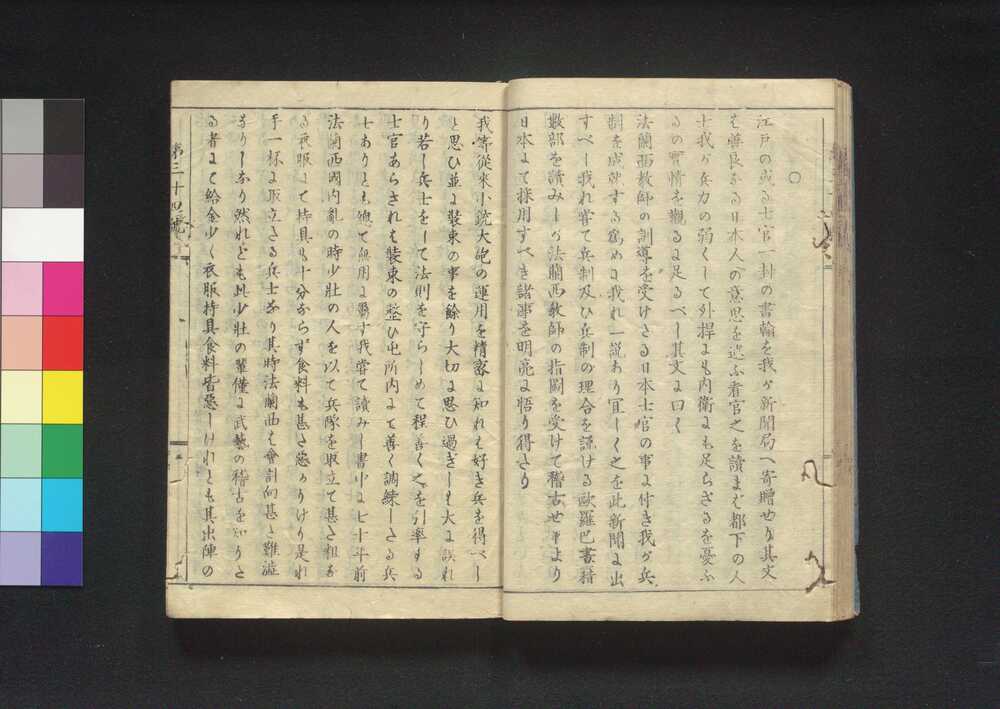 〇
江戸の或る士官一封の書翰を我が新聞局へ寄贈せり其文
も善良なる日本人の意思を述ふ看官之を讀まば都下の人
士我が兵力の弱くして外捍にも内衛にも足らざるを憂ふ
るの實情を觀るに足るべし其文に曰く
法蘭西敎師の訓導を受けたる日本士官の事に付き我が兵
制を成就する爲めに我れ一説あり宜しく之を此新聞に出
すべし我れ嘗て兵制及ひ兵制の理合を講ける歐羅巴書籍
數部を讀みしが法蘭西敎師の指圖を受けて稽古せしより
日本にて採用すべき諸事を明亮に悟り得たり
我等從來小銃大砲の運用を精密に知れは好き兵を得べし
と思ひ並に裝束の事を餘り大切に思ひ過ぎしも大に誤れ
り若し兵士をして法則を守らしめて程善く之を引率する
士官あらされは裝束の整ひ屯所内にて善く調練したる兵
士ありとも總て無用に屬す我嘗て讀みし書中に七十年前
法蘭西國内亂の時少壯の人を以て兵隊を取立て甚た粗な
る衣服にて持具も十分ならず食料も甚た惡かりけり是れ
手一杯に取立たる兵士なり其時法蘭西は會計向甚た難澁
なりしなり然れども此少壯の輩僅に武藝の稽古を知りた
る者にて給金少く衣服持具食料皆惡しけれとも其出陣の
第三十四號